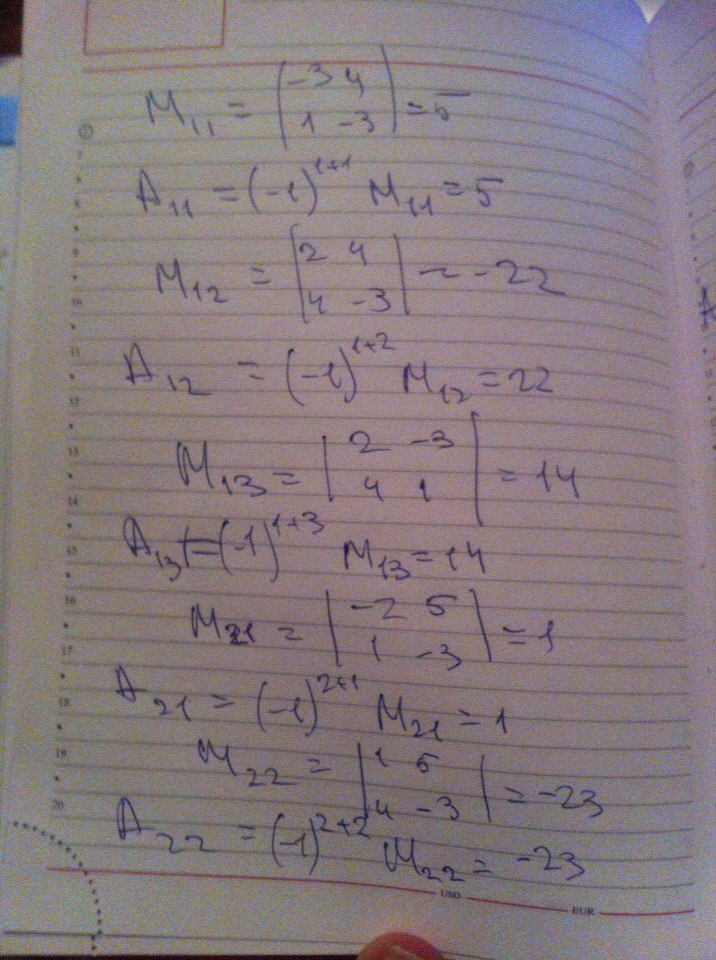 M₁₁ = |-3 4; 1 -3| = 5
A₁₁ = (-1)¹⁺¹ M₁₁ = 5
M₁₂ = |2 4; 4 -3| = -22
A₁₂ = (-1)¹⁺² M₁₂ = 22
M₁₃ = |2 -3; 4 1| = 14
A₁₃ = (-1)¹⁺³ M₁₃ = 14
M₂₁ = |-2 5; 1 -3| = 1
A₂₁ = (-1)²⁺¹ M₂₁ = 1
M₂₂ = |1 5; 4 -3| = -23
A₂₂ = (-1)²⁺² M₂₂ = -23
USD
EUR